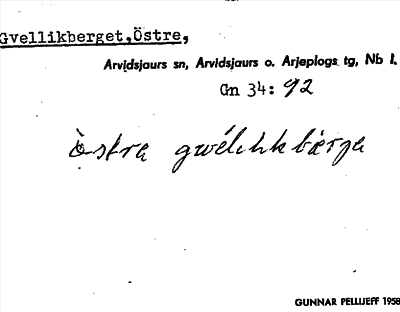 Gvellikberget,Östre,
Arvidsjaurs sn, Arvidsjaurs o. Arjeplogs tg, Nb l.
Gn 34: 92
GUNNAR PELLIJEFF 1958